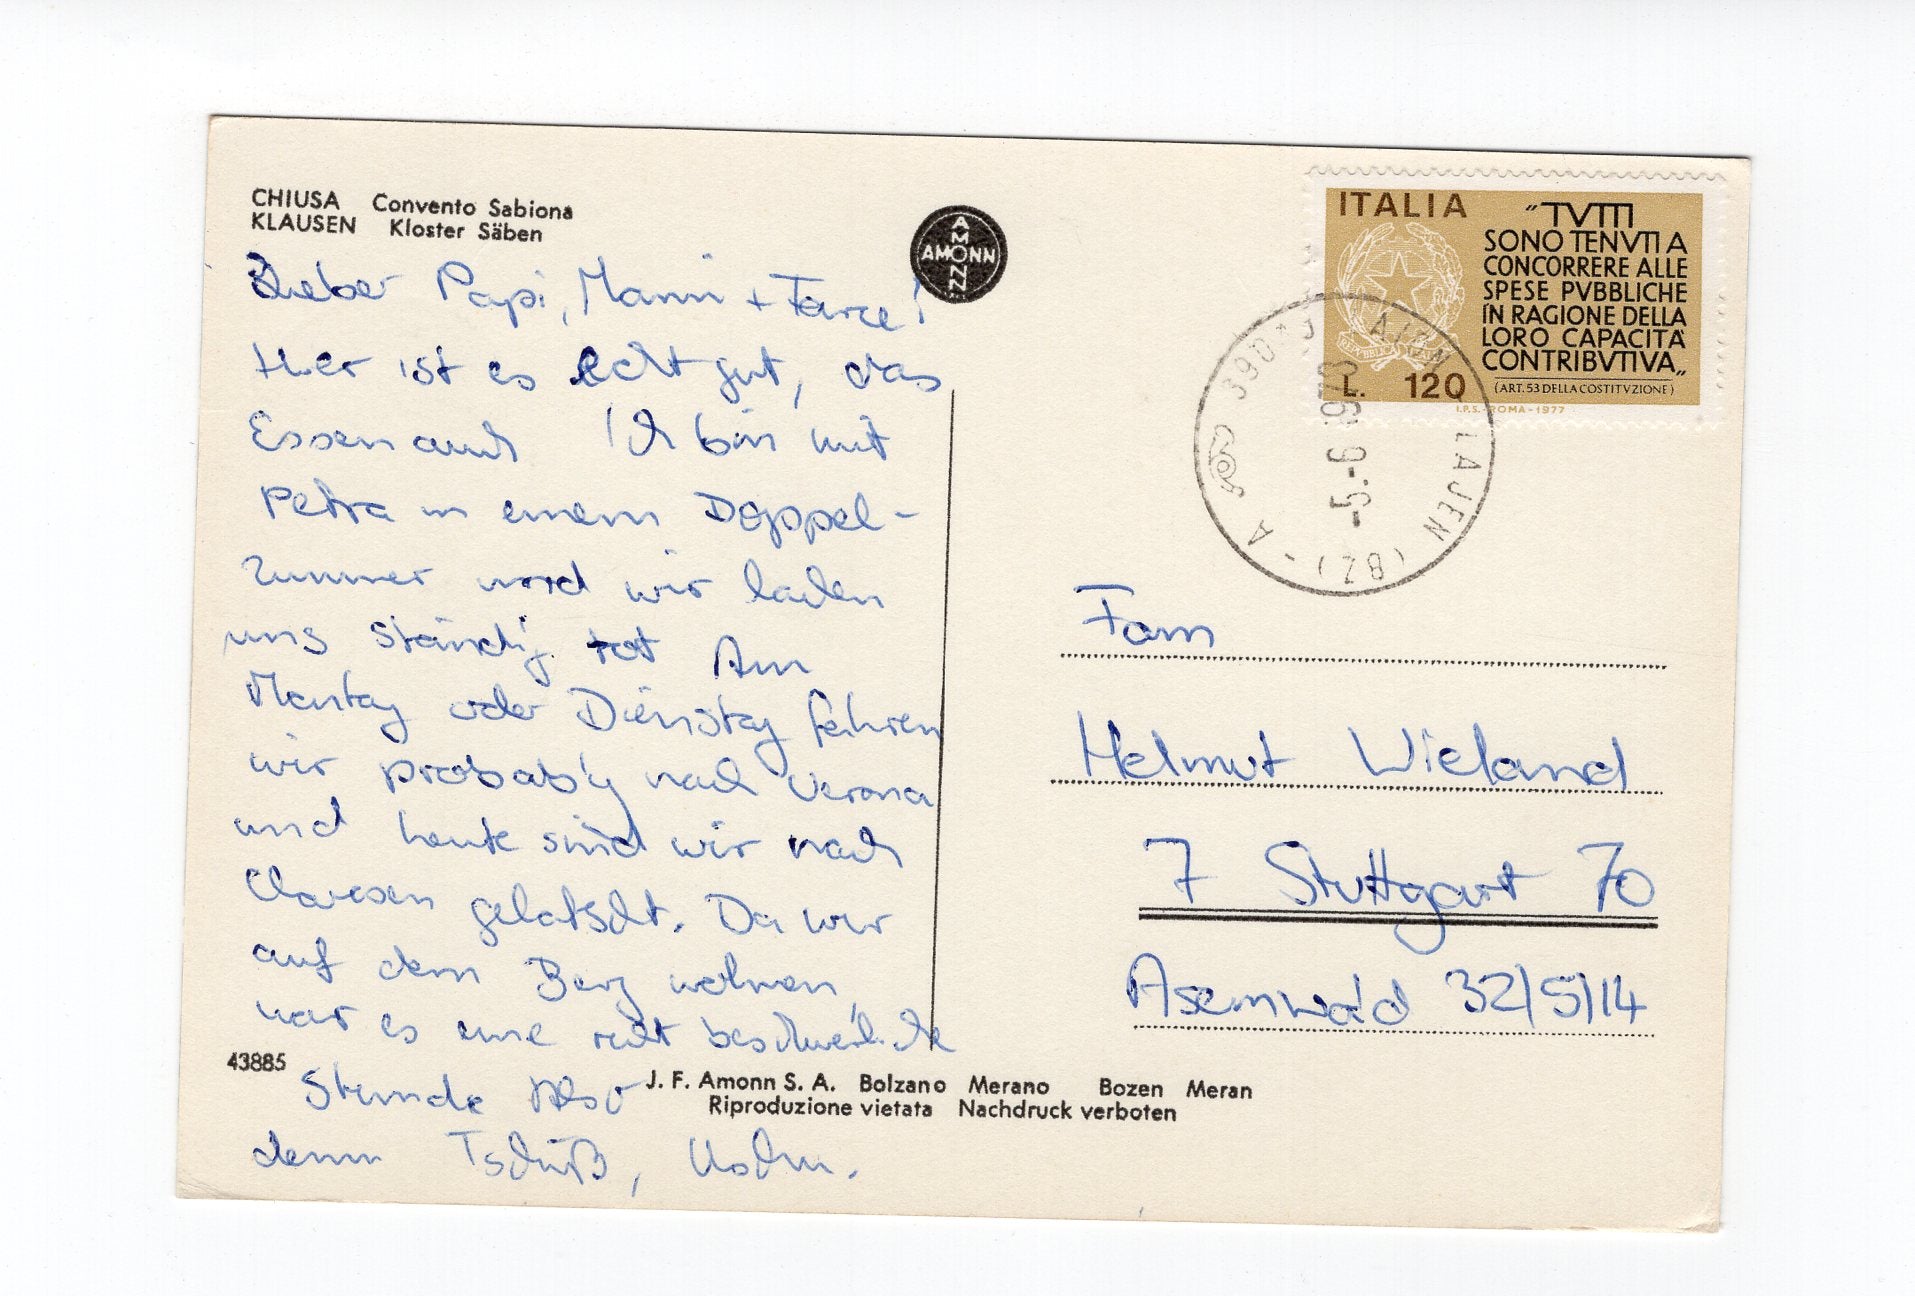 CHIUSA Convento Sabiona
KLAUSEN Kloster Säben
AMONN
AMONN
Lieber Papi, Mami +
Hier ist es echt gut, das
Essen auch Ich bin mit
Petra in einem Doppel-
zimmer und wir lachen
uns ständig tot Am
Montag oder Dienstag fahren
wir probably nach Verona
und heute sind wir nach
gelatscht. Da wir
auf dem Berg wohnen,
war es eine recht beschwerliche
Stunde Also
denn Tschüß,
43885
J. F. Amonn S. A. Bolzano Merano Bozen Meran
Riproduzione vietata Nachdruck verboten
ITALIA
"TVTTI
SONO TENVTI A
CONCORRERE ALLE
SPESE PVBBLICHE
IN RAGIONE DELLA
LORO CAPACITÀ
CONTRIBVTIVA"
(ART. 53 DELLA COSTITVZIONE)
L. 120
I.P.S. ROMA-1977
LAJEN (BZ) - A
-5.-6.1978
Fam
Helmut Wieland
7 Stuttgart 70
Asemwald 32/5/14